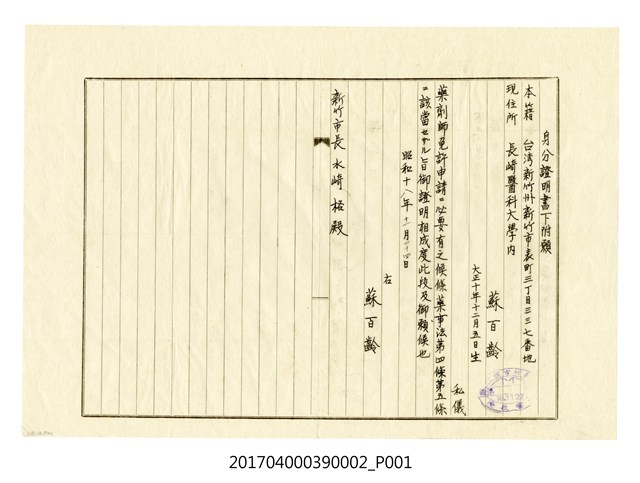 身分證明書下附願
本籍 台湾新竹州新竹市表町三丁目三三七番地
現住所 長崎醫科大學內
蘇百齡
大正十年十二月五日生
私儀
藥劑師免許申請ニ必要有之候條藥事法第四條第五條
ニ該當セザル旨御證明相成度此段及御願候也
昭和十八年十一月二十四日
右
蘇百齡
新竹市長 水崎 格殿
201704000390002_P001